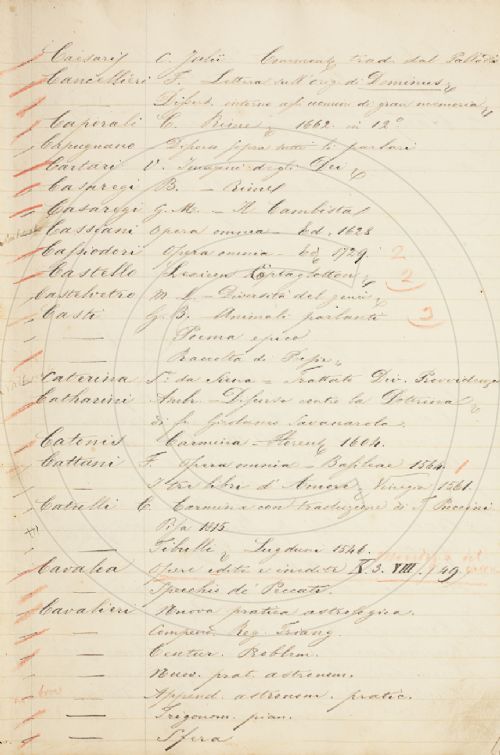 Caesaris C. Julii Comment. trad. dal
Cancellieri F. – Lettera sull'orig. di Dominus
— Dissert. intorno agli uomini di gran memoria
Caporali C. Rime 1662 in 12°
Capugnano – sopra tutti li parlari
Cartari V. Imagini degli Dei
Casaregi B. – Rime
Casaregi G. M. – Il Cambista
Cassiani Opera omnia – Ed. 1628
Cassiodori Opera omnia – Ed. 1729. 2
Castello Lexicon Eptaglotton 2
Castelvetro
Casti G. B. – Animali parlanti 3
— Poema epico
— Raccolta di
Caterina S. da Siena – Trattato Div. Provvidenza
Catharini Amb. – Discorso contro la Dottrina
di fr. Girolamo Savonarola.
Catenis Carmina – Florent. 1604.
Cattani F. Opera omnia – Basileae 1564. 1
— Tre libri d'Amore, Venegia 1561.
Catulli C. Carmina con traduzione di T. Puccini
Pisa 1815.
— Tibulli Lugduni 1546.
Cavalca Opere edite e inedite X. 3. VIII. 49
— Specchio de' Peccati.
Cavalieri Nuova pratica astrologica.
— Compend. Reg. Triang.
— Centur. Problem.
— Nuov. prat. astronom.
— Append. astronom. pratic.
— Trigonom. pian.
— Sfera